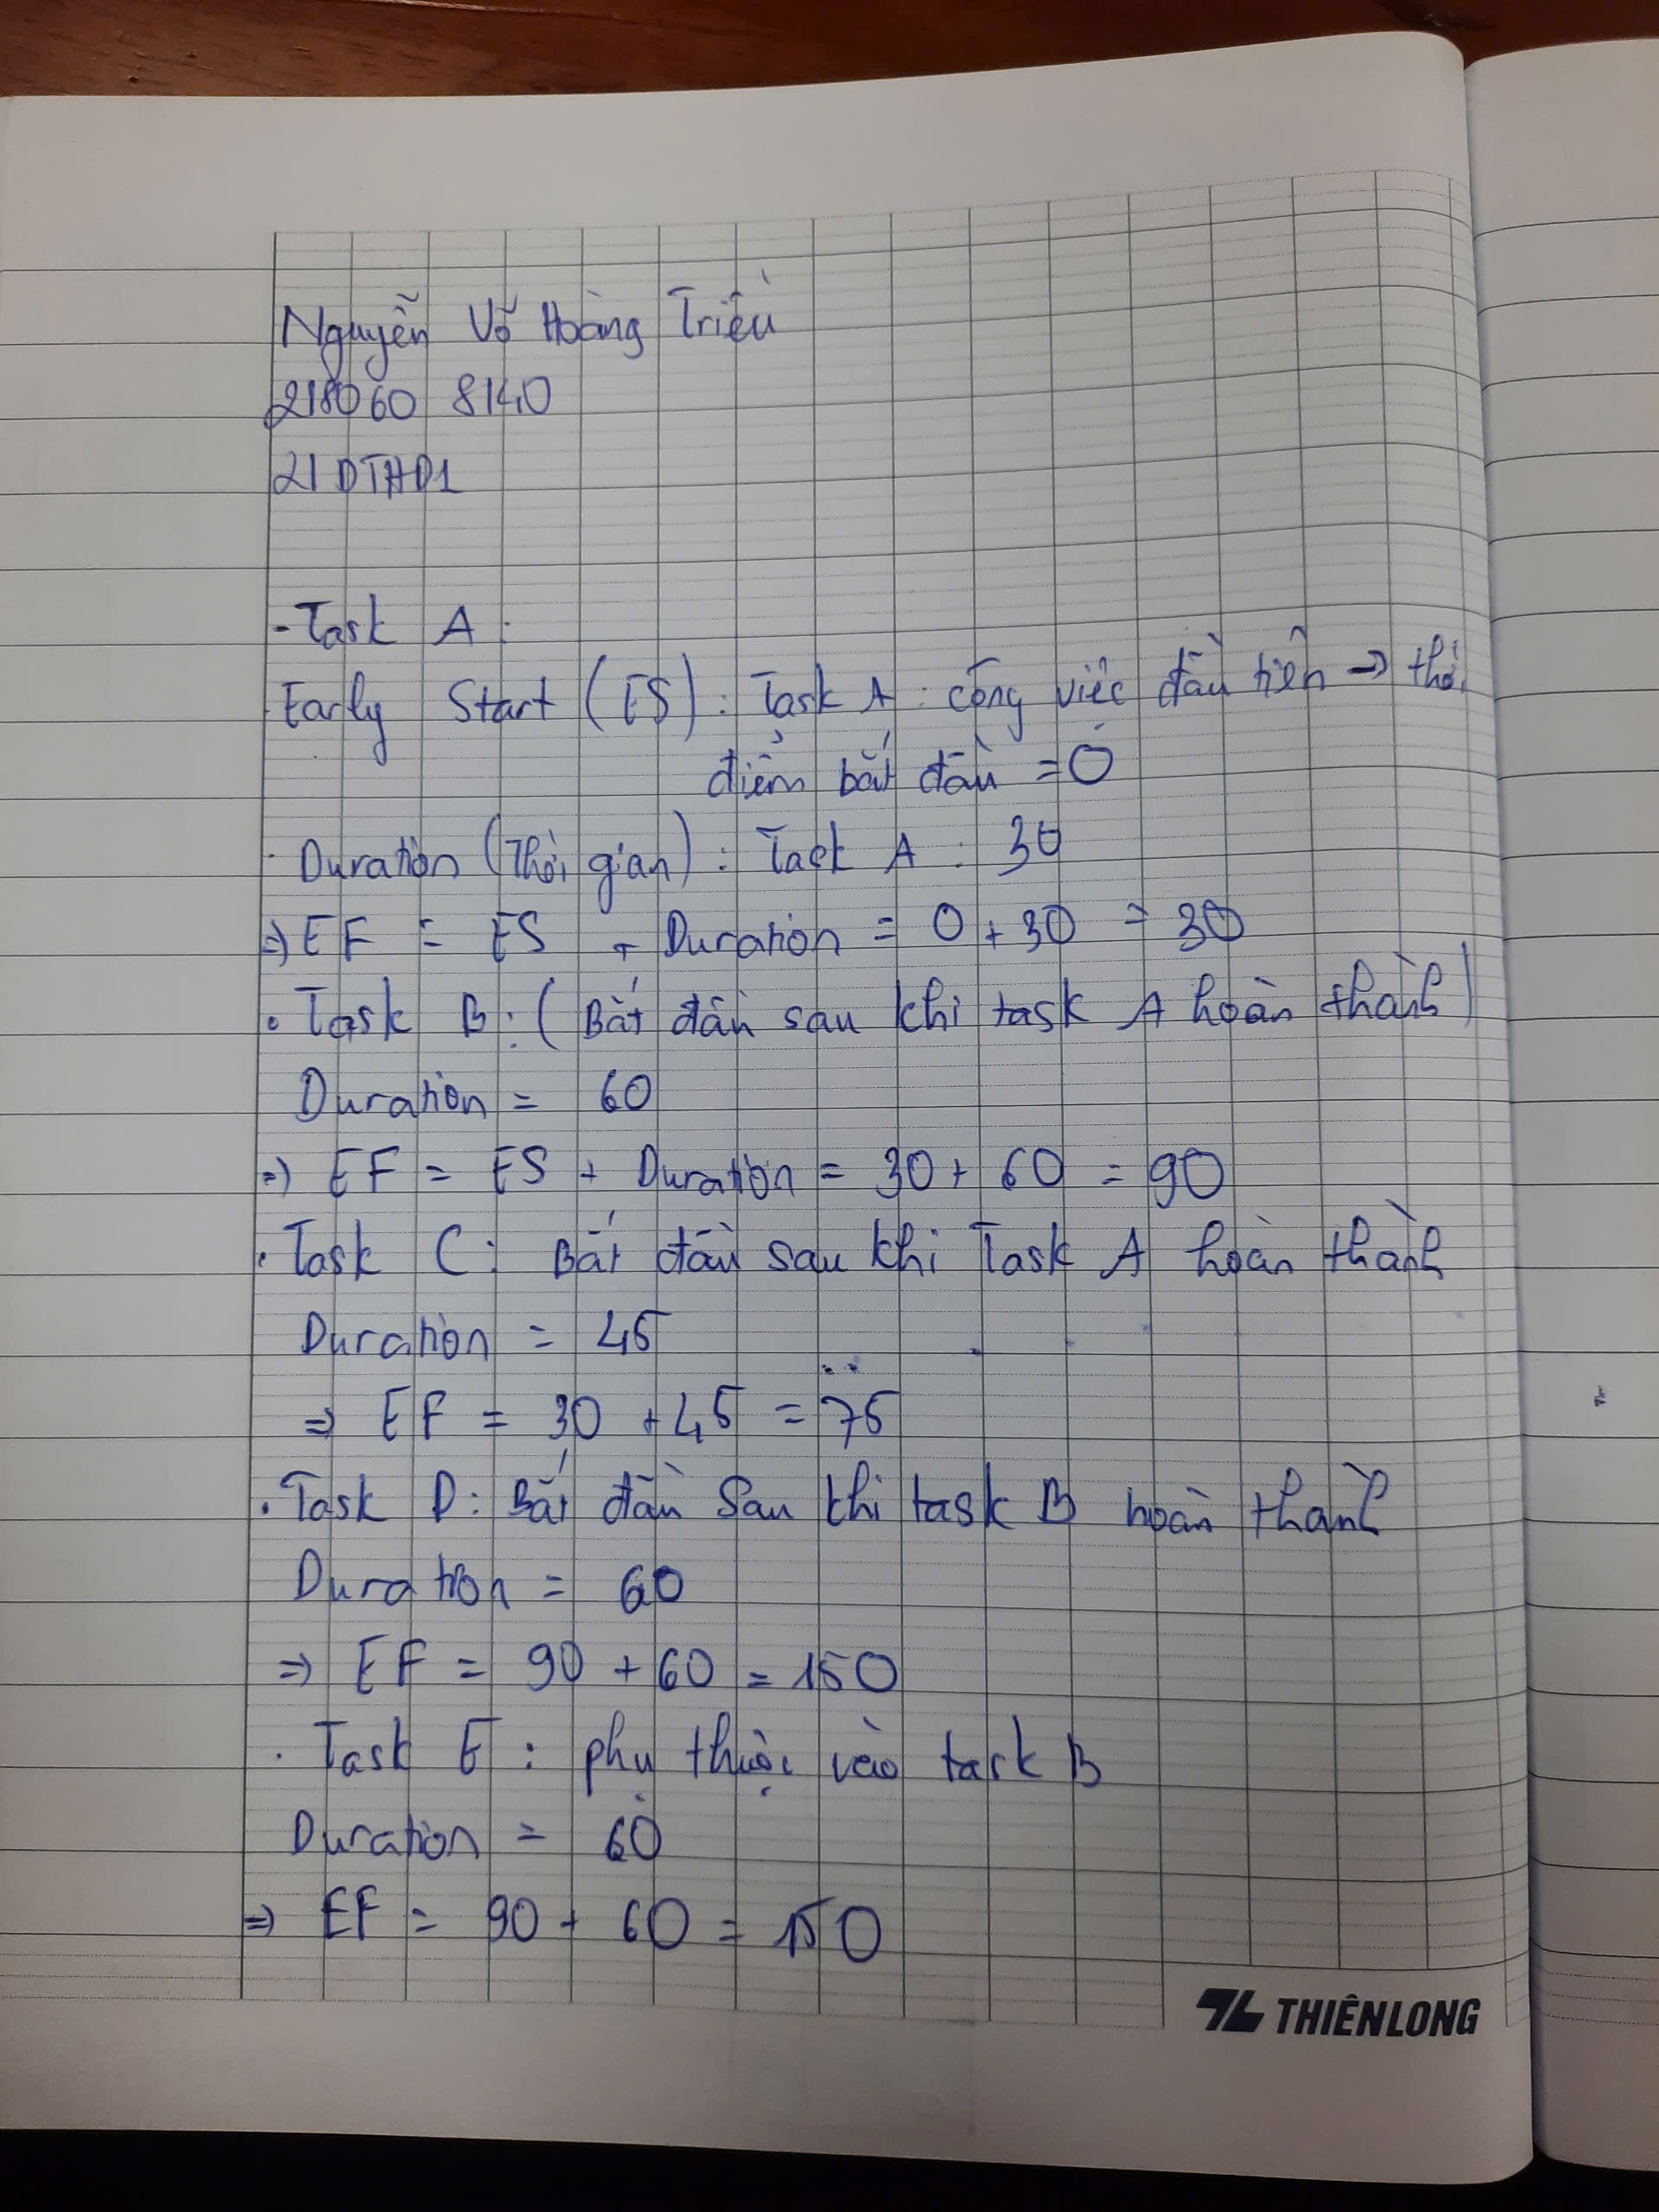 Nguyễn Võ Hoàng Triều
218060 8140
21DTHD1
- Task A:
Early Start (ES): Task A: công việc đầu tiên => thời
điểm bắt đầu = 0
Duration (Thời gian): Task A: 30
=> EF = ES + Duration = 0 + 30 = 30
• Task B: (Bắt đầu sau khi task A hoàn thành)
Duration = 60
=> EF = ES + Duration = 30 + 60 = 90
• Task C: Bắt đầu sau khi Task A hoàn thành
Duration = 45
=> EF = 30 + 45 = 75
• Task D: Bắt đầu sau khi task B hoàn thành
Duration = 60
=> EF = 90 + 60 = 150
• Task E: phụ thuộc vào task B
Duration = 60
=> EF = 90 + 60 = 150
THIÊN LONG